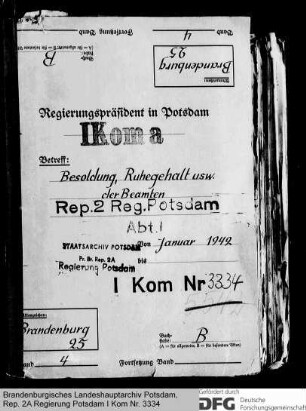 Fortsetzung Band
4
Brandenburg
25
B
Regierungspräsident in Potsdam
I Kom a
Betreff:
Besoldung, Ruhegehalt usw.
der Beamten
Rep.2 Reg.Potsdam
Abt.I
STAATSARCHIV POTSDAM
Von Januar 1942
Pr. Br. Rep. 2A
bis
Regierung Potsdam
I Kom Nr 3334
Brandenburg
25
B
4
Fortsetzung Band
Brandenburgisches Landeshauptarchiv Potsdam,
Rep. 2A Regierung Potsdam I Kom Nr. 3334
Gefördert durch
DFG
Deutsche
Forschungsgemeinschaft